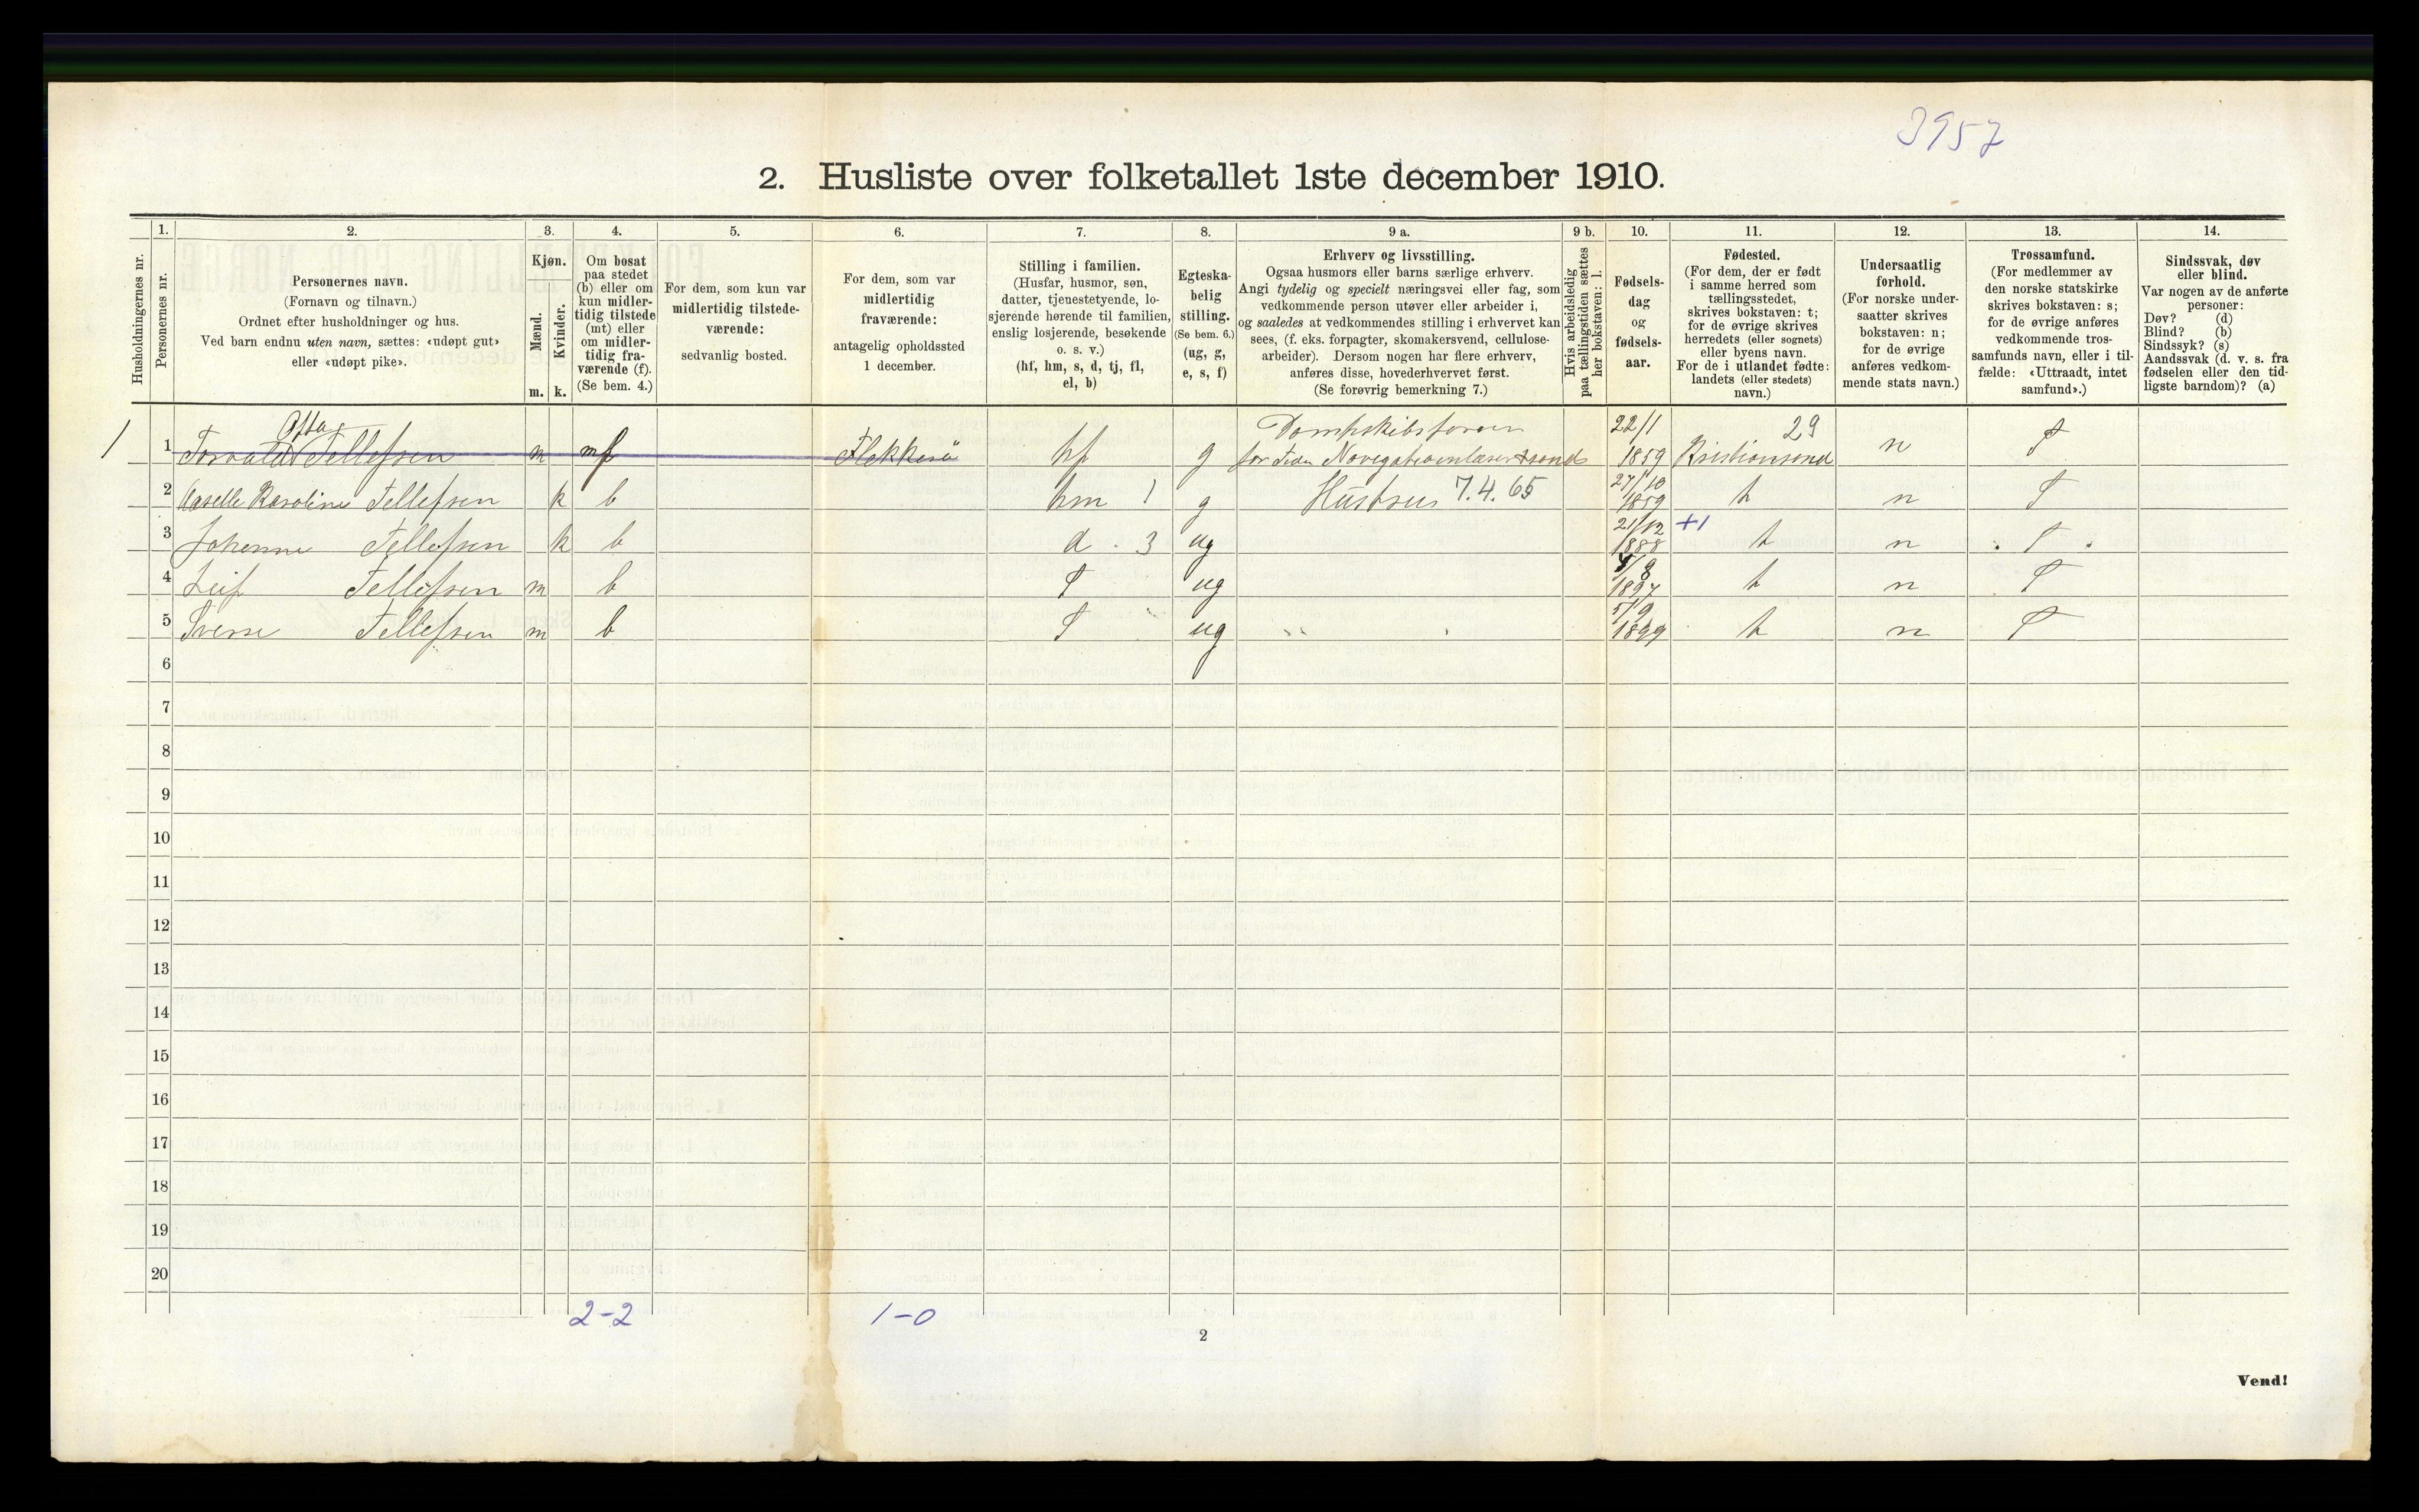 3957
2. Husliste over folketallet 1ste december 1910.
Husholdningernes nr.
1.
Personernes nr.
2.
Personernes navn.
(Fornavn og tilnavn.)
Ordnet efter husholdninger og hus.
Ved barn endnu uten navn, sættes: «udøpt gut»
eller «udøpt pike».
3.
Kjøn.
Mænd.
m.
Kvinder.
k.
4.
Om bosat
paa stedet
(b) eller om
kun midler-
tidig tilstede
(mt) eller
om midler-
tidig fra-
værende (f).
(Se bem. 4.)
5.
For dem, som kun var
midlertidig tilstede-
værende:
sedvanlig bosted.
6.
For dem, som var
midlertidig
fraværende:
antagelig opholdssted
1 december.
7.
Stilling i familien.
(Husfar, husmor, søn,
datter, tjenestetyende, lo-
sjerende hørende til familien,
enslig losjerende, besøkende
o. s. v.)
(hf, hm, s, d, tj, fl,
el, b)
8.
Egteska-
belig
stilling.
(Se bem. 6.)
(ug, g,
e, s, f)
9 a.
Erhverv og livsstilling.
Ogsaa husmors eller barns særlige erhverv.
Angi tydelig og specielt næringsvei eller fag, som
vedkommende person utøver eller arbeider i,
og saaledes at vedkommendes stilling i erhvervet kan
sees, (f. eks. forpagter, skomakersvend, cellulose-
arbeider). Dersom nogen har flere erhverv,
anføres disse, hovederhvervet først.
(Se forøvrig bemerkning 7.)
9 b.
Hvis arbeidsledig
paa tællingstiden sættes
her bokstaven: l.
10.
Fødsels-
dag
og
fødsels-
aar.
11.
Fødested.
(For dem, der er født
i samme herred som
tællingsstedet,
skrives bokstaven: t;
for de øvrige skrives
herredets (eller sognets)
eller byens navn.
For de i utlandet fødte:
landets (eller stedets)
navn.)
12.
Undersaatlig
forhold.
(For norske under-
saatter skrives
bokstaven: n;
for de øvrige
anføres vedkom-
mende stats navn.)
13.
Trossamfund.
(For medlemmer av
den norske statskirke
skrives bokstaven: s;
for de øvrige anføres
vedkommende tros-
samfunds navn, eller i til-
fælde: «Uttraadt, intet
samfund».)
14.
Sindssvak, døv
eller blind.
Var nogen av de anførte
personer:
Døv? (d)
Blind? (b)
Sindssyk? (s)
Aandssvak (d. v. s. fra
fødselen eller den tid-
ligste barndom)? (a)
1 1 Torvald Tellefsen m mf Flekkerö hf g 22/1 1859 Kristiansand 29 n S
2 Karoline Tellefsen k b hm 1 g Hustru 7.4.65 27/10 1859 t n S
3 Johanne Tellefsen k b d 3 ug 21/12 1888 +1 t n S
4 Leif Tellefsen m b S ug 1897 t n S
5 Sverre Tellefsen m b S ug 5/9 1899 t n S
6
7
8
9
10
11
12
13
14
15
16
17
18
19
20
2-2 1-0
2
Vend!